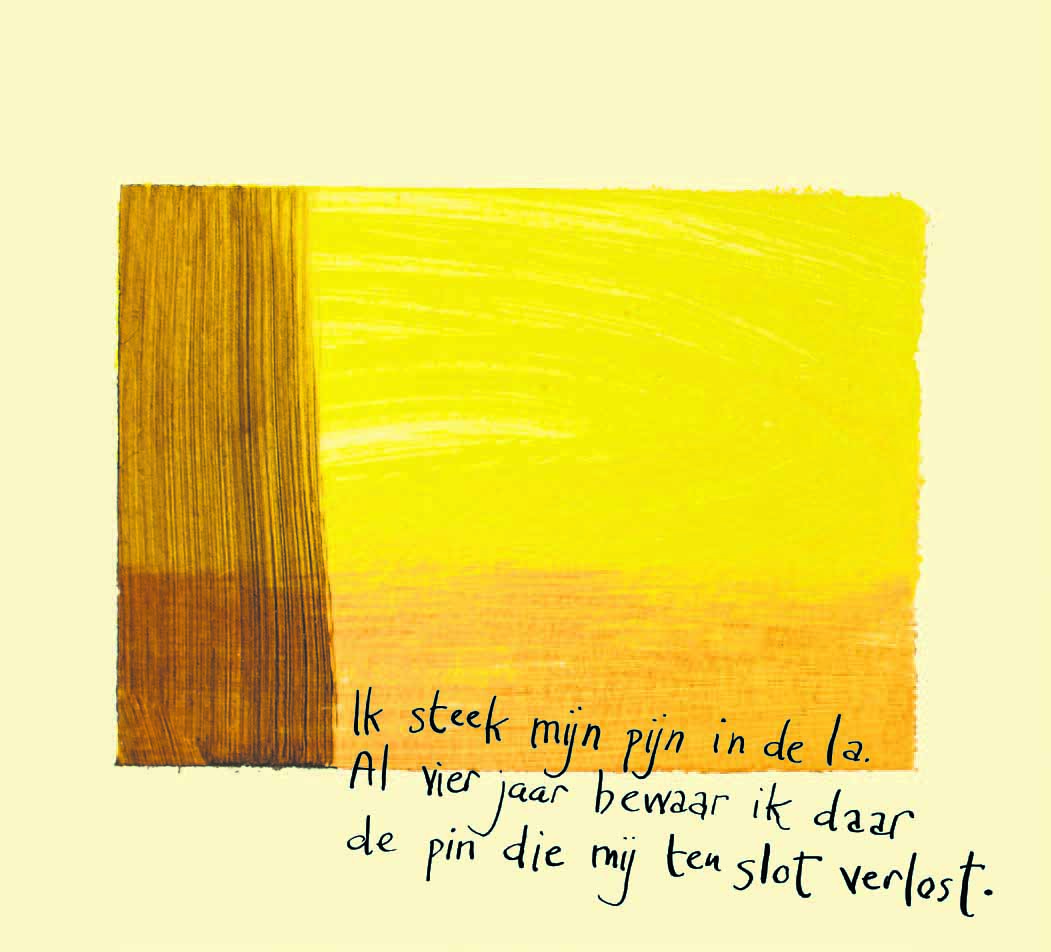 Ik steek mijn pijn in de la.
Al vier jaar bewaar ik daar
de pin die mij ten slot verlost.